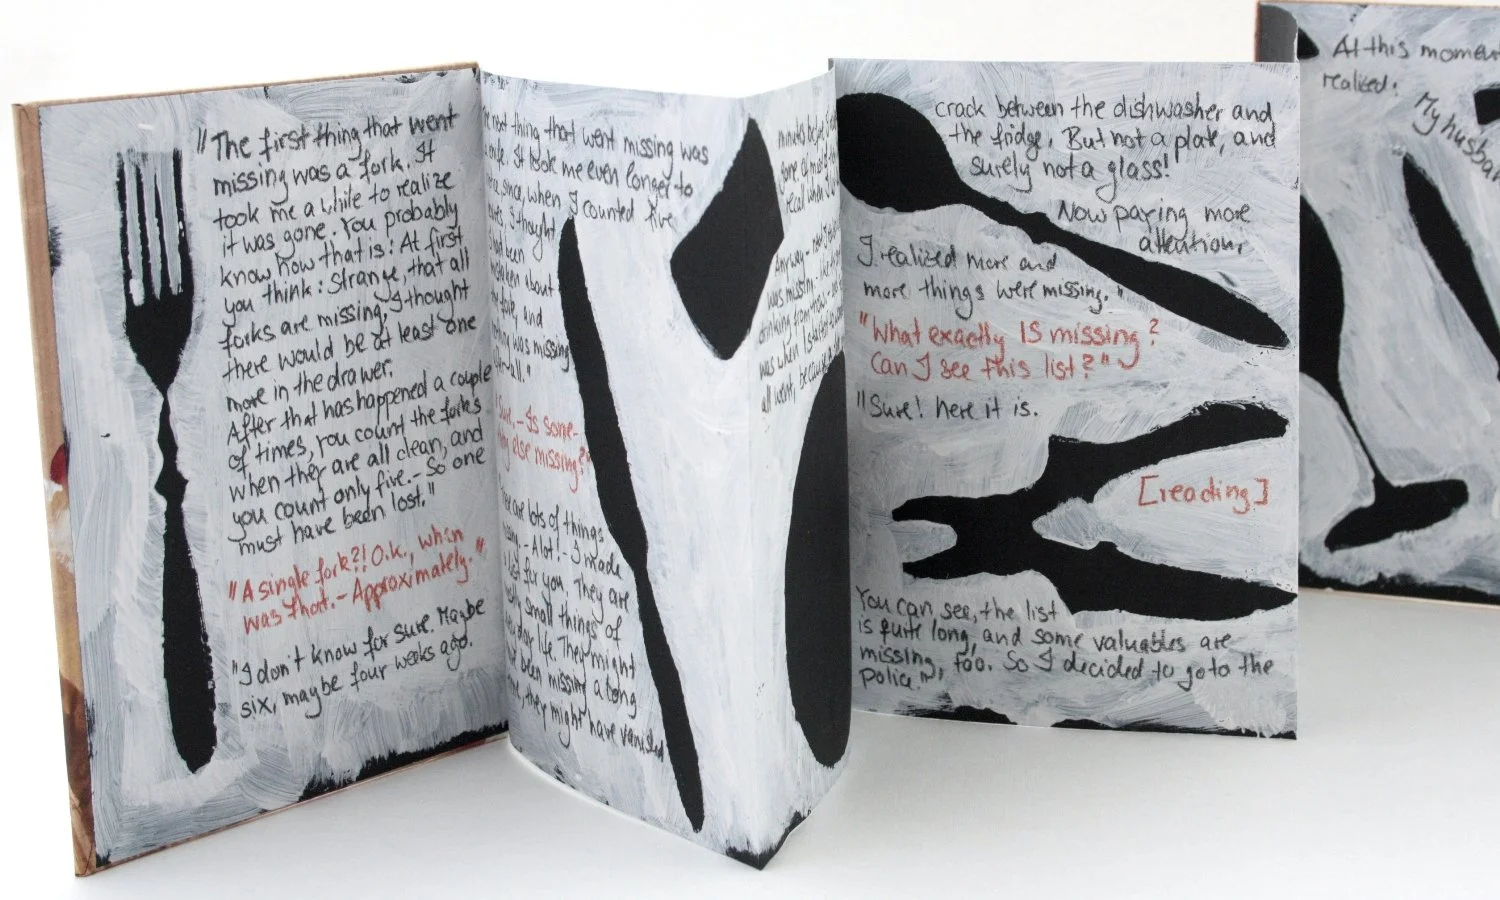 "The first thing that went
missing was a fork. It
took me a while to realize
it was gone. You probably
know how that is: At first
you think: Strange, that all
forks are missing, I thought
there would be at least one
more in the drawer.
After that has happened a couple
of times, you count the forks
when they are all clean, and
you count only five. - So one
must have been lost."
"A single fork?! O.k., when
was that. - Approximately."
"I don't know for sure. Maybe
six, maybe four weeks ago.
next thing that went missing was
It took me even longer to
since, when I counted five
I thought
had been
about
and
was missing
"
Sure. - Is some-
else missing?"
are lots of things
- A lot! - I made
list for you. They are
small things of
day life. They might
been missing a long
they might have vanished
minutes before
gone
recall when
Anyway -
was missing -
drinking from
was when I started
all went, because
crack between the dishwasher and
the fridge. But not a plate, and
surely not a glass!
Now paying more
attention,
I realized more and
more things were missing."
"What exactly IS missing?
Can I see this list?"
"Sure! here it is.
[reading]
You can see, the list
is quite long, and some valuables are
missing, too. So I decided to go to the
police."
At this moment
realized:
My husban